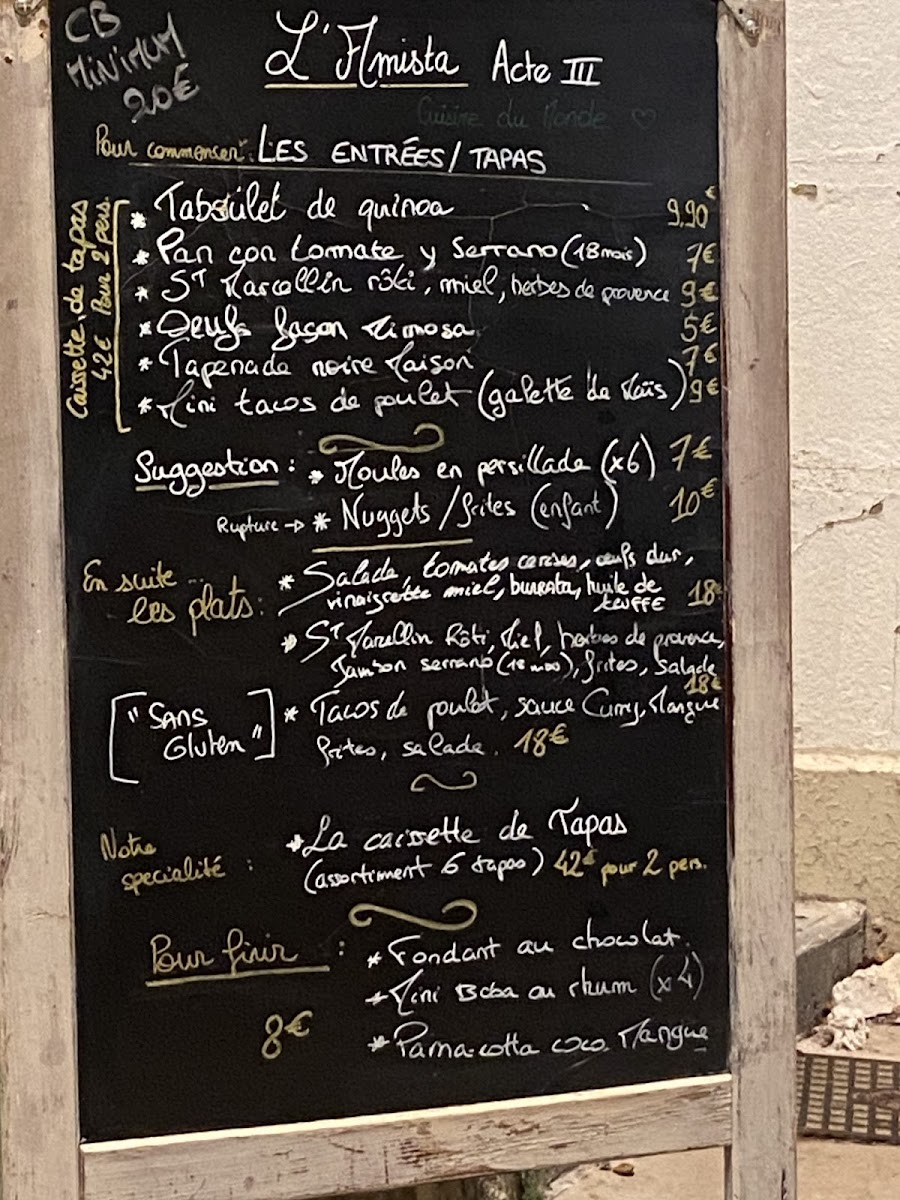 CB
MINIMUM
20€
L'Amista Acte III
Cuisine du Monde
Pour commencer: LES ENTRÉES/TAPAS
Caissette de tapas
42€ Pour 2 pers.
* Taboulet de quinoa 9,90€
* Pan con tomate y Serrano (18 mois) 7€
* ST Marcellin rôti, miel, herbes de provence 9€
* Oeufs façon Mimosa 5€
* Tapenade noire Maison 7€
* Mini tacos de poulet (galette de Maïs) 9€
Suggestion : * Moules en persillade (x6) 7€
Rupture → * Nuggets/frites (enfant) 10€
En suite ...
les plats:
* Salade, tomates cerises, oeufs dur,
vinaigrette miel, burrata, huile de
truffe 18€
* ST Marcellin Rôti, Miel, herbes de provence,
Jambon serrano (18 mois), frites, salade
18€
["SANS
Gluten"]
* Tacos de poulet, sauce Curry, Mangue
frites, salade. 18€
Notre
specialité :
* La caissette de Tapas
(assortiment 6 tapas) 42€ pour 2 pers.
Pour finir :
8€
* Fondant au chocolat.
* Mini Baba au rhum (x4)
* Panna-cotta coco Mangue